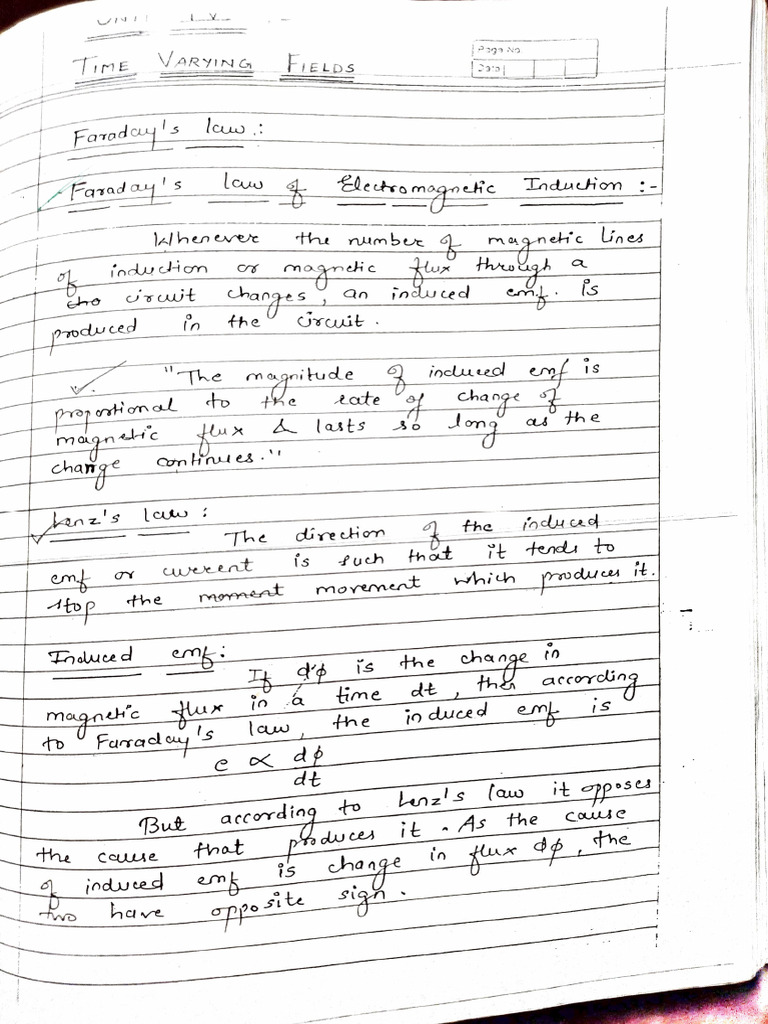 UNIT IV
TIME VARYING FIELDS
Page No
Date
Faraday's law :
Faraday's law of Electromagnetic Induction :-
Whenever the number of magnetic lines
of induction or magnetic flux through a
circuit changes, an induced emf. is
produced in the circuit.
"The magnitude of induced emf is
proportional to the rate of change of
magnetic flux & lasts so long as the
change continues."
Lenz's law :
The direction of the induced
emf or current is such that it tends to
stop the moment movement which produces it.
Induced emf:
If dϕ is the change in
magnetic flux in a time dt, then according
to Faraday's law, the induced emf is
e ∝ dϕ
dt
But according to Lenz's law it opposes
the cause that produces it. As the cause
of induced emf is change in flux dϕ, the
two have opposite sign.